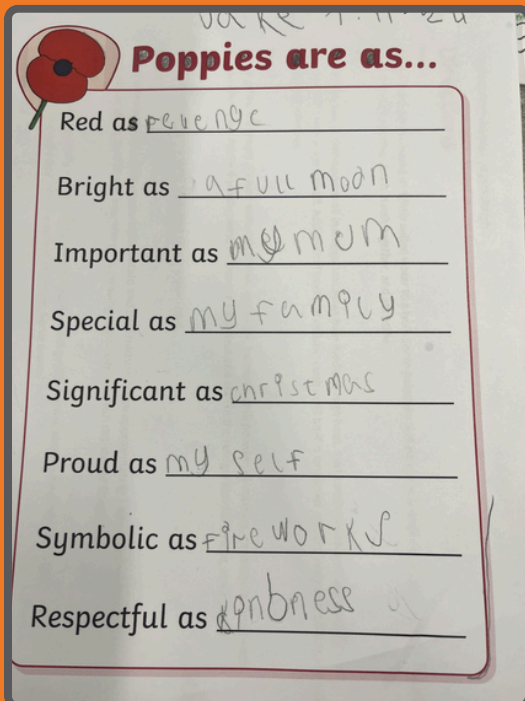 Jake 7.11.24
Poppies are as...
Red as revenge
Bright as a full moon
Important as my mum
Special as my family
Significant as christmas
Proud as my self
Symbolic as fireworks
Respectful as kinbness